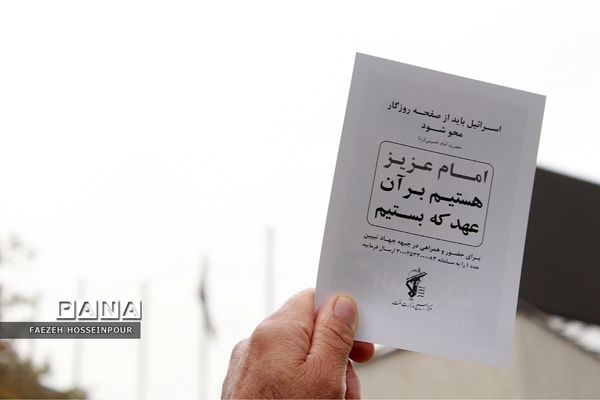 اسرائیل باید از صفحه روزگار
محو شود
حضرت امام خمینی(ره)
امام عزیز
هستیم بر آن
عهد که بستیم
برای حضور و همراهی در جبهه جهاد تبیین
عدد ۱ را به سامانه ۳۰۰۰۲۵۳۳۰۰۰۰۸۳ ارسال فرمایید
PANA
FAEZEH HOSSEINPOUR